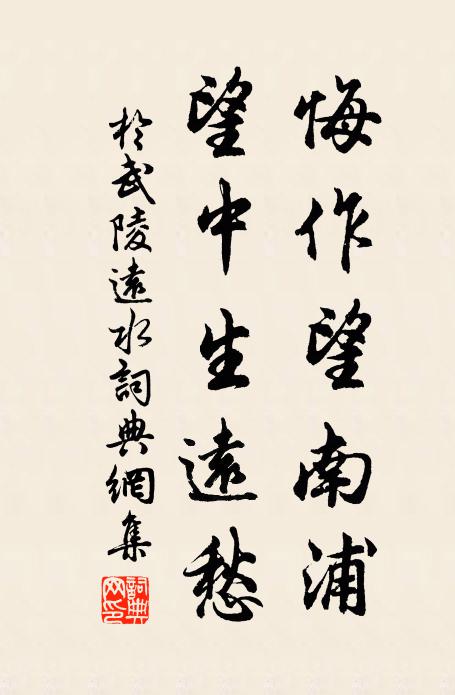 悔作望南浦
望中生遠愁
於武陵遠水詞典網集
詞典網印